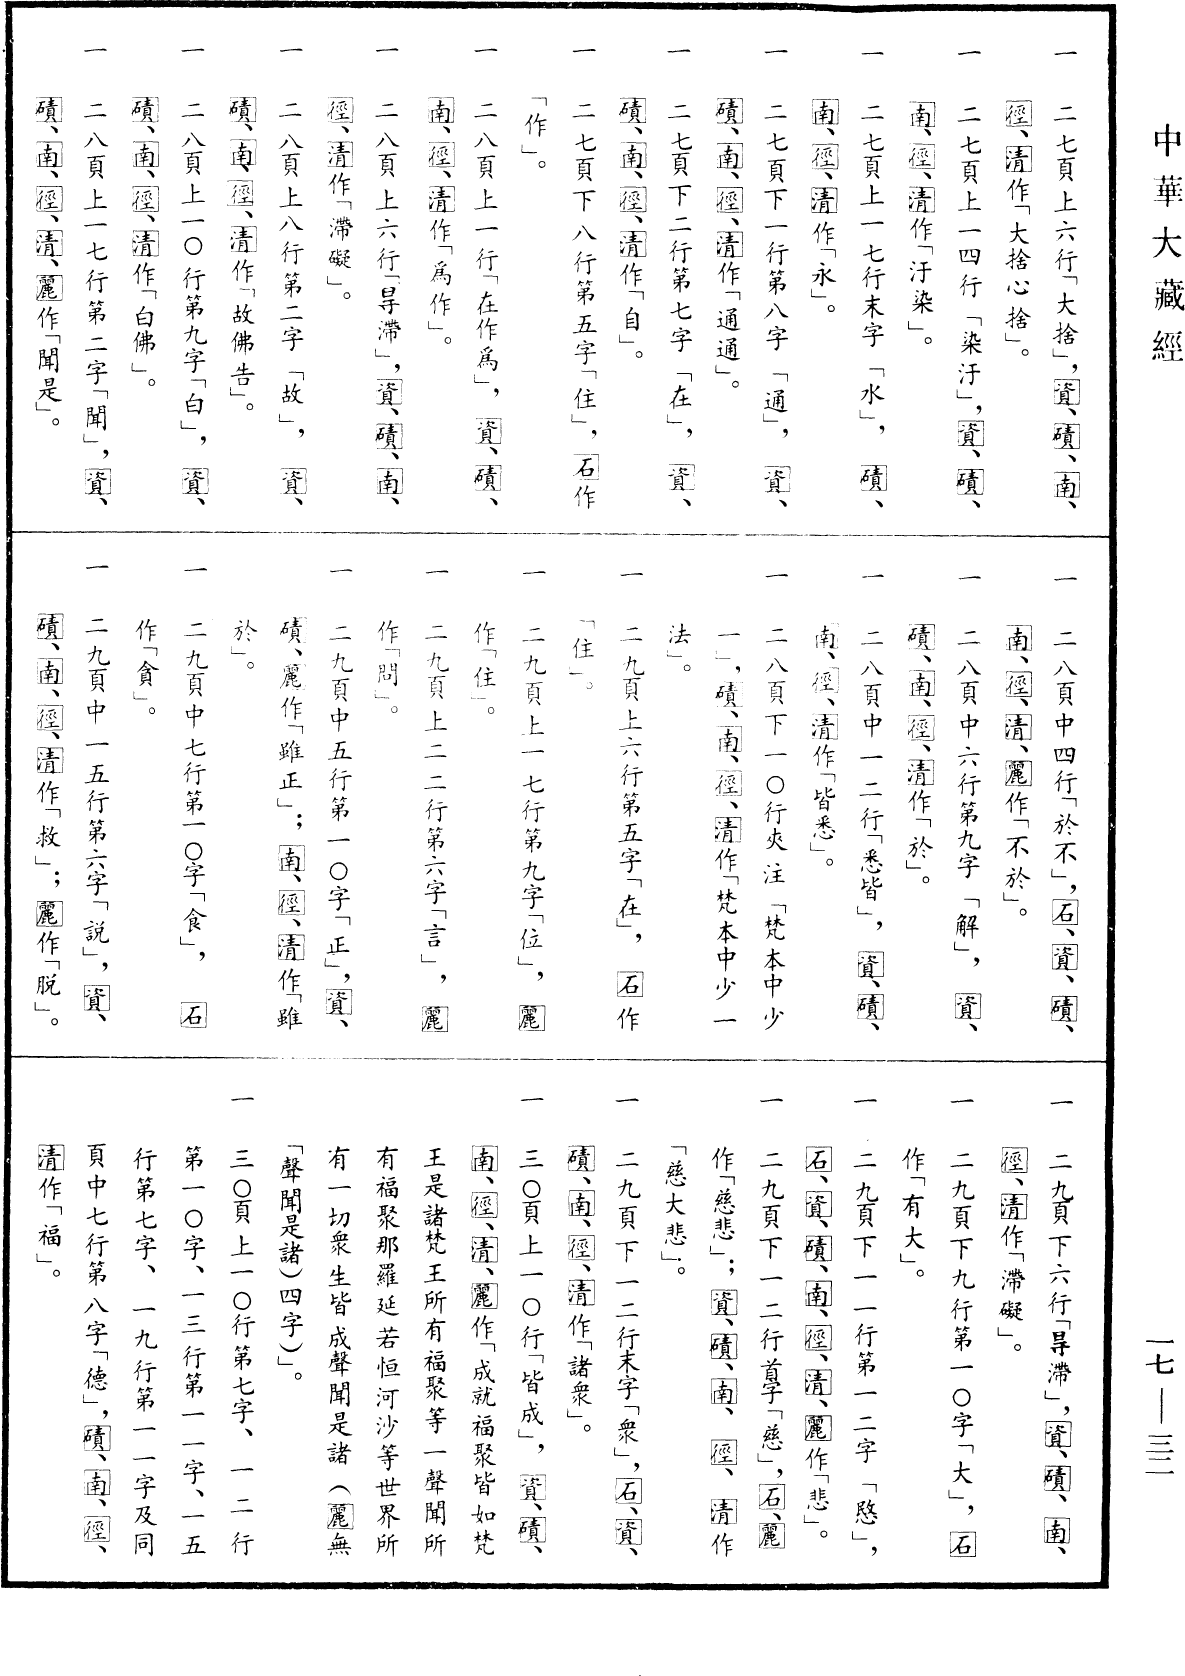 中華大藏經
一　二七頁上六行「大捨」，資、磧、南、
徑、清作「大捨心捨」。
一　二七頁上一四行「染汙」，資、磧、
南、徑、清作「汙染」。
一　二七頁上一七行末字「水」，磧、
南、徑、清作「永」。
一　二七頁下一行第八字「通」，資、
磧、南、徑、清作「通通」。
一　二七頁下二行第七字「在」，資、
磧、南、徑、清作「自」。
一　二七頁下八行第五字「住」，石作
「作」。
一　二八頁上一行「在作爲」，資、磧、
南、徑、清作「爲作」。
一　二八頁上六行「㝵滯」，資、磧、南、
徑、清作「滯礙」。
一　二八頁上八行第二字「故」，資、
磧、南、徑、清作「故佛告」。
一　二八頁上一〇行第九字「白」，資、
磧、南、徑、清作「白佛」。
一　二八頁上一七行第二字「聞」，資、
磧、南、徑、清、麗作「聞是」。
一　二八頁中四行「於不」，石、資、磧、
南、徑、清、麗作「不於」。
一　二八頁中六行第九字「解」，資、
磧、南、徑、清作「於」。
一　二八頁中一二行「悉皆」，資、磧、
南、徑、清作「皆悉」。
一　二八頁下一〇行夾注「梵本中少
一」，磧、南、徑、清作「梵本中少一
法」。
一　二九頁上六行第五字「在」，石作
「住」。
一　二九頁上一七行第九字「位」，麗
作「住」。
一　二九頁上二二行第六字「言」，麗
作「問」。
一　二九頁中五行第一〇字「正」，資、
磧、麗作「雖正」；南、徑、清作「雖
於」。
一　二九頁中七行第一〇字「食」，石
作「貪」。
一　二九頁中一五行第六字「説」，資、
磧、南、徑、清作「救」；麗作「脱」。
一　二九頁下六行「㝵滯」，資、磧、南、
徑、清作「滯礙」。
一　二九頁下九行第一〇字「大」，石
作「有大」。
一　二九頁下一一行第一二字「愍」，
石、資、磧、南、徑、清、麗作「悲」。
一　二九頁下一二行首字「慈」，石、麗
作「慈悲」；資、磧、南、徑、清作
「慈大悲」。
一　二九頁下一二行末字「衆」，石、資、
磧、南、徑、清作「諸衆」。
一　三〇頁上一〇行「皆成」，資、磧、
南、徑、清、麗作「成就福聚皆如梵
王是諸梵王所有福聚等一聲聞所
有福聚那羅延若恒河沙等世界所
有一切衆生皆成聲聞是諸（麗無
「聲聞是諸）四字）」。
一　三〇頁上一〇行第七字、一二行
第一〇字、一三行第一一字、一五
行第七字、一九行第一一字及同
頁中七行第八字「德」，磧、南、徑、
清作「福」。
一七—三二